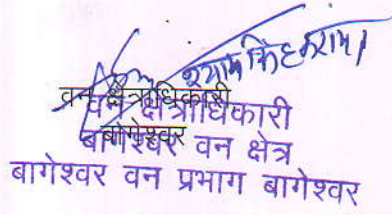 श्याम सिंह करायत
वन क्षेत्राधिकारी
बागेश्वर
वन क्षेत्राधिकारी
बागेश्वर वन क्षेत्र
बागेश्वर वन प्रभाग बागेश्वर